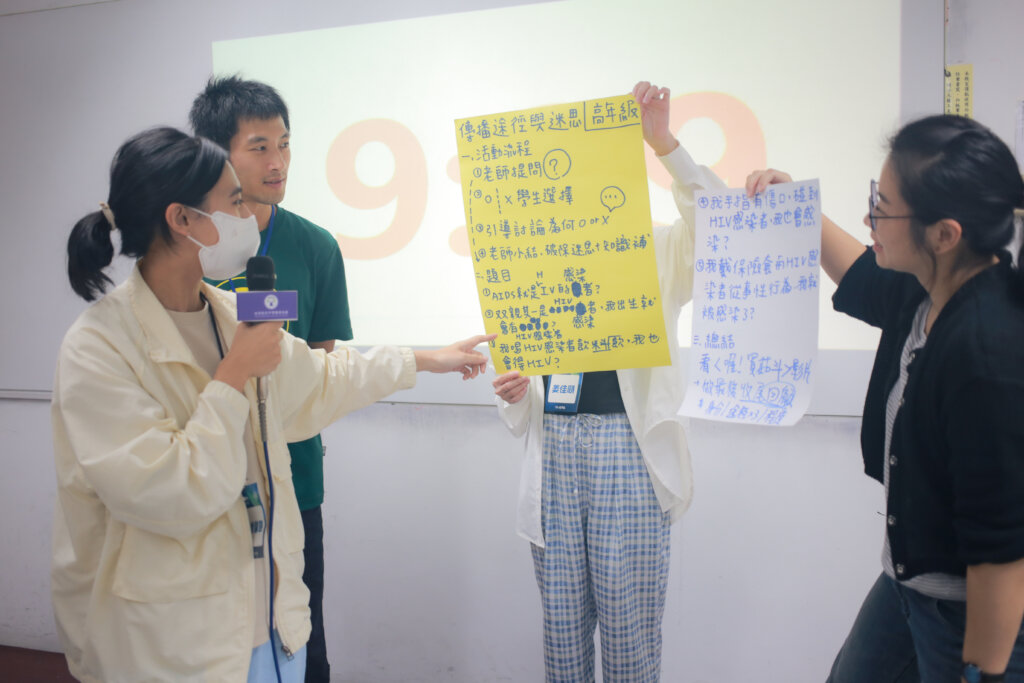 傳播途徑與迷思 高年級
一、活動流程
①老師提問 ?
② O X 學生選擇
③引導討論為何 O or X
④老師小結,破除迷思+知識補
二、題目 H 感染
①AIDS就是IV的者?
HIV
②双親其一是者,我出生就
會有? 感染
HIV
③我喝HIV感染者飲料飲,我也
會得HIV?
④我手指有傷口,碰到
HIV感染者,我也會感
染?
⑤我戴保險套與HIV感
染者從事性行為,我就
被感染了?
三、總結
看く喔!
+做最後收尾回饋
9 9
姜佳頤